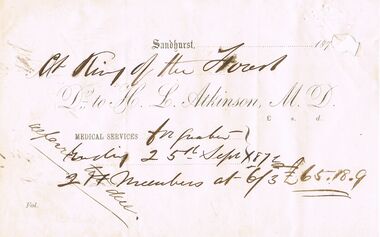 Sandhurst, 187
Ct King of the Forest
Dr. to H. L. Atkinson, M. D.
£ s. d.
MEDICAL SERVICES for quarter
Ending 25th Sept 187
211 Members at 6/3 £65.18.9
Fol.